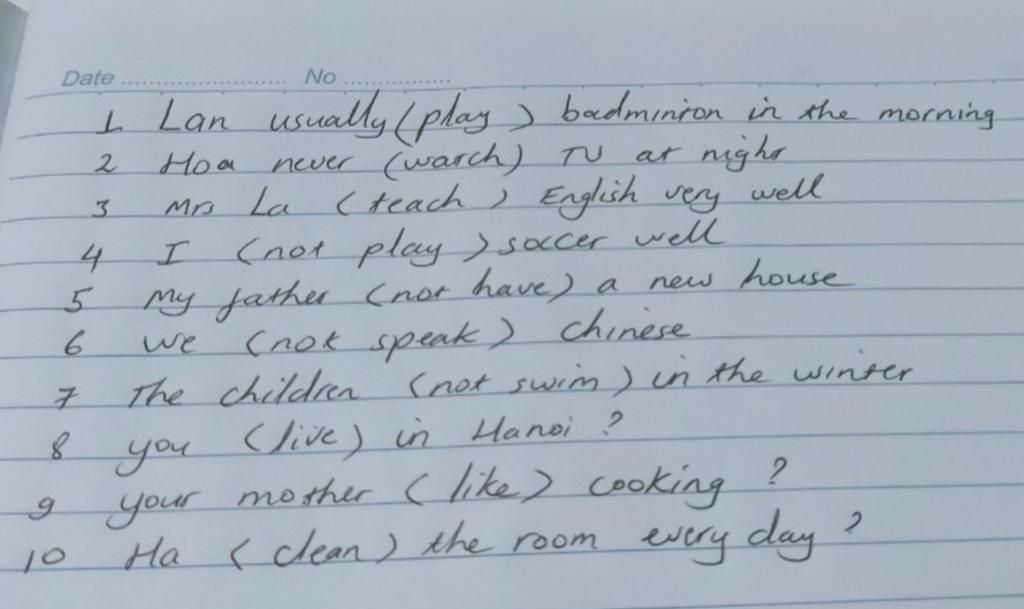 Date ........................ No ................
1 Lan usually (play) badminton in the morning
2 Hoa never (watch) TV at night
3 Mrs La (teach) English very well
4 I (not play) soccer well
5 My father (not have) a new house
6 we (not speak) Chinese
7 The children (not swim) in the winter
8 you (live) in Hanoi ?
9 your mother (like) cooking ?
10 Ha (clean) the room every day ?